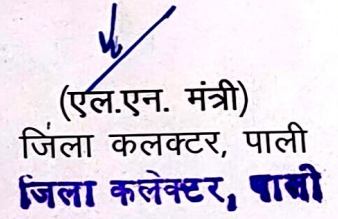 (एल.एन. मंत्री)
जिला कलक्टर, पाली
जिला कलेक्टर, पाली